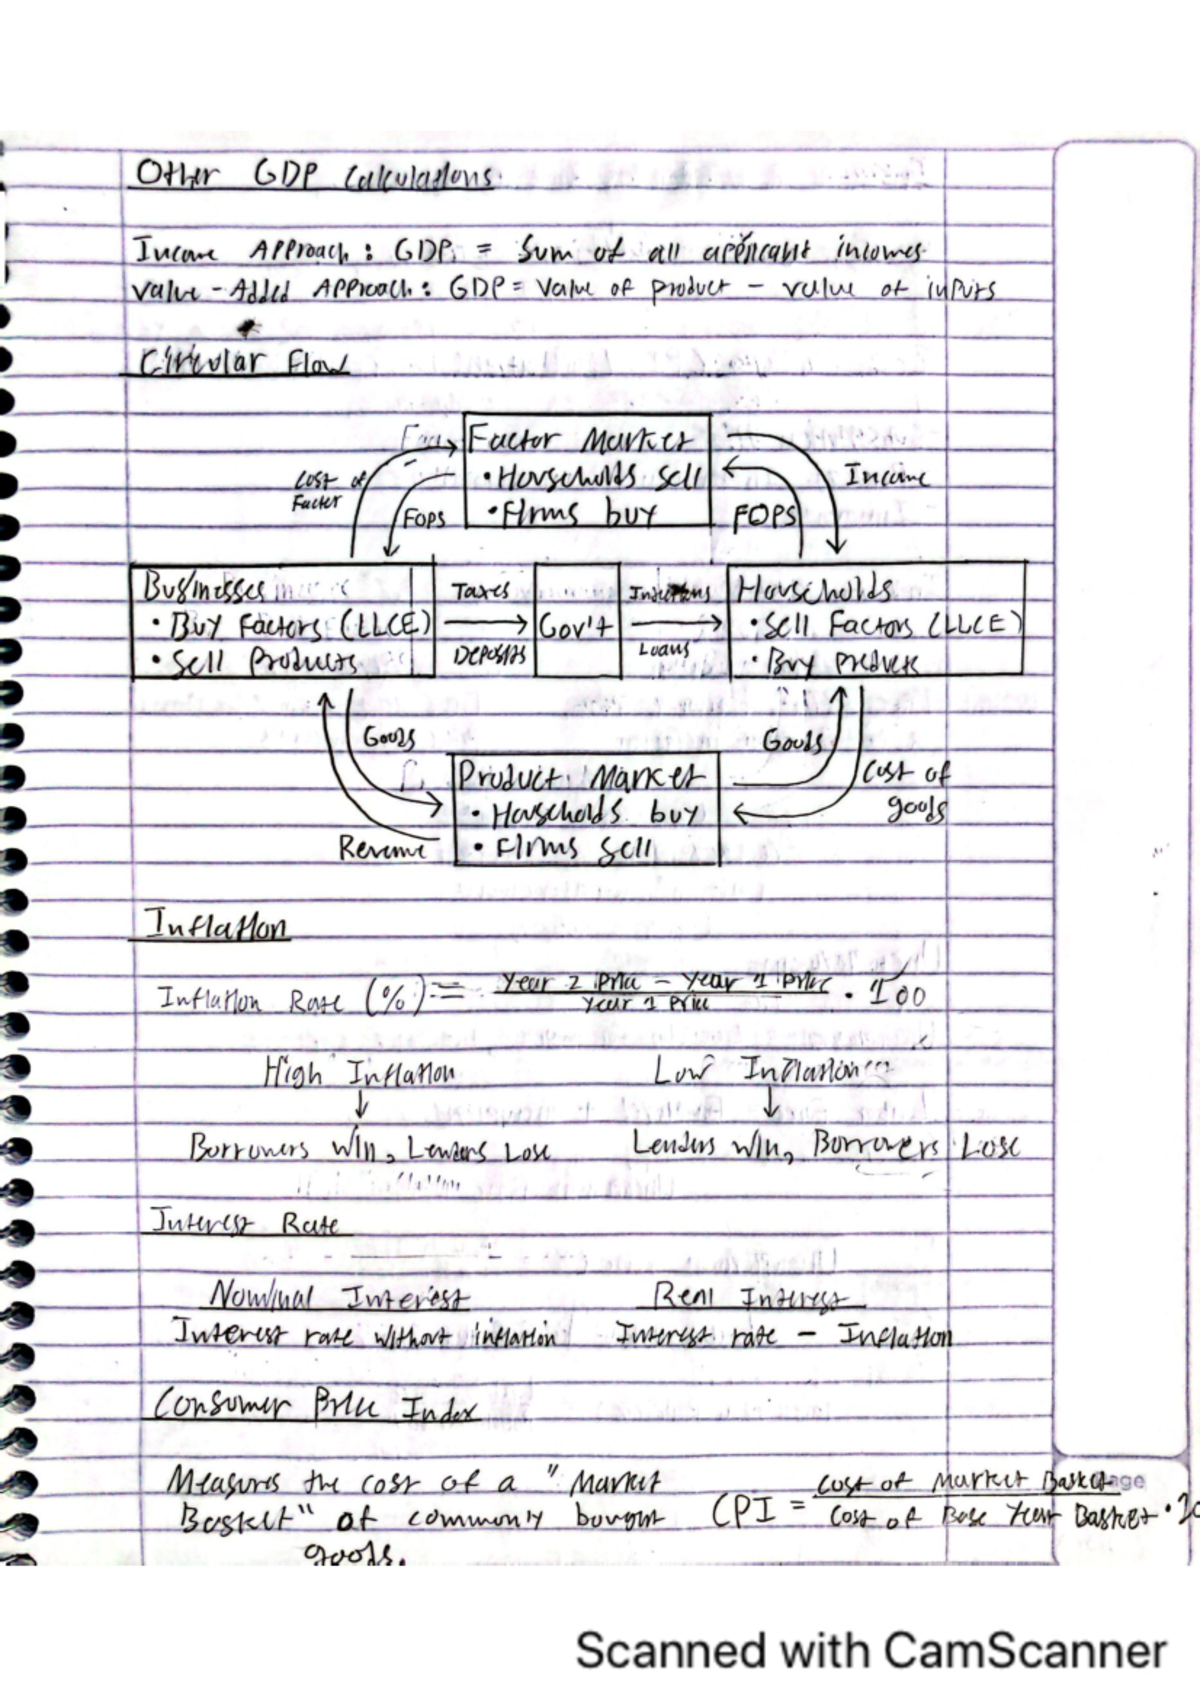 Other GDP Calculations
Income Approach: GDP = Sum of all applicant incomes
Value-Added Approach: GDP = Value of product - value of inputs
Circular Flow
Factor Market
• Households sell
• Firms buy
Cost of
Factor
FOPS
FOPS
Income
Businesses
• Buy Factors (LLCE)
• Sell Products
Taxes
Deposits
Gov't
Loans
Households
• Sell Factors (LLCE)
• Buy products
Goods
Revenue
Product Market
• Households buy
• Firms sell
Goods
Cost of
goods
Inflation
Inflation Rate (%) = Year 2 Price - Year 1 Price / Year 1 Price • 100
High Inflation Low Inflation
↓ ↓
Borrowers win, Lenders Lose Lenders win, Borrowers Lose
Interest Rate
Nominal Interest Real Interest
Interest rate without inflation Interest rate - Inflation
Consumer Price Index
Measures the cost of a "Market
Basket" of commonly bought
goods.
CPI = Cost of Market Basket / Cost of Base Year Basket •
Scanned with CamScanner